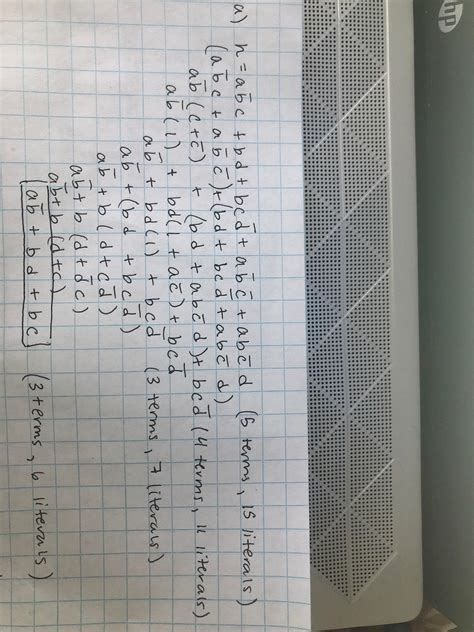 hp
a) h = ab̄c + bd + bcd̄ + ab̄c̄ + abc̄d (5 terms, 15 literals)
(ab̄c + ab̄c̄)+(bd + bcd̄ + abc̄d)
ab̄(c+c̄) + (bd + abc̄d)+ bcd̄ (4 terms, 11 literals)
ab̄(1) + bd(1 + ac̄) + bcd̄
ab̄ + bd(1) + bcd̄ (3 terms, 7 literals)
ab̄ + (bd + bcd̄)
ab̄ + b (d + cd̄)
ab̄ + b (d + d̄c)
ab̄ + b (d+c)
ab̄ + bd + bc (3 terms, 6 literals)